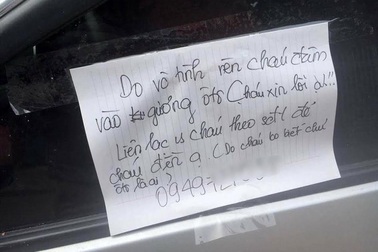 Do vô tình nên cháu đâm
vào gương ôtô (Cháu xin lỗi ạ!!
Liên lạc vs cháu theo số đt để
cháu đền ạ (Do cháu ko biết chủ
ôtô là ai)
0949